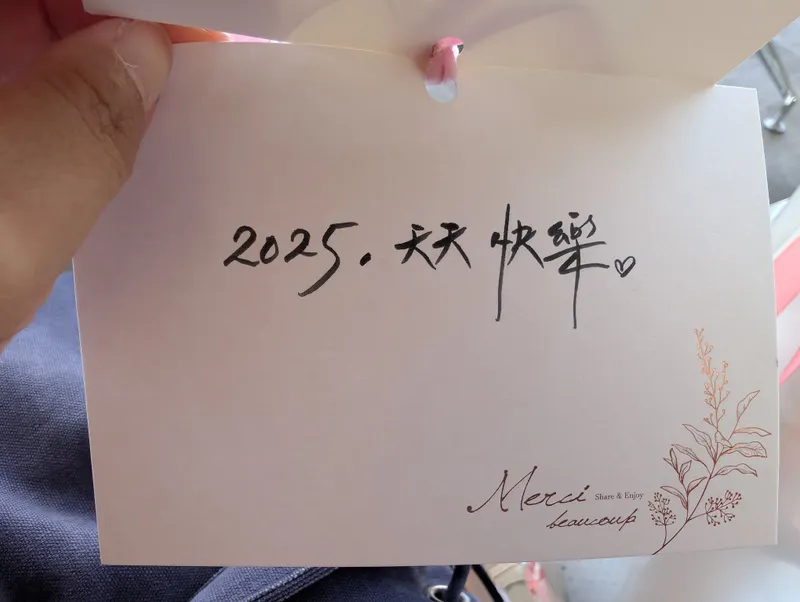 2025. 天天快樂♡
Merci
Share & Enjoy
beaucoup